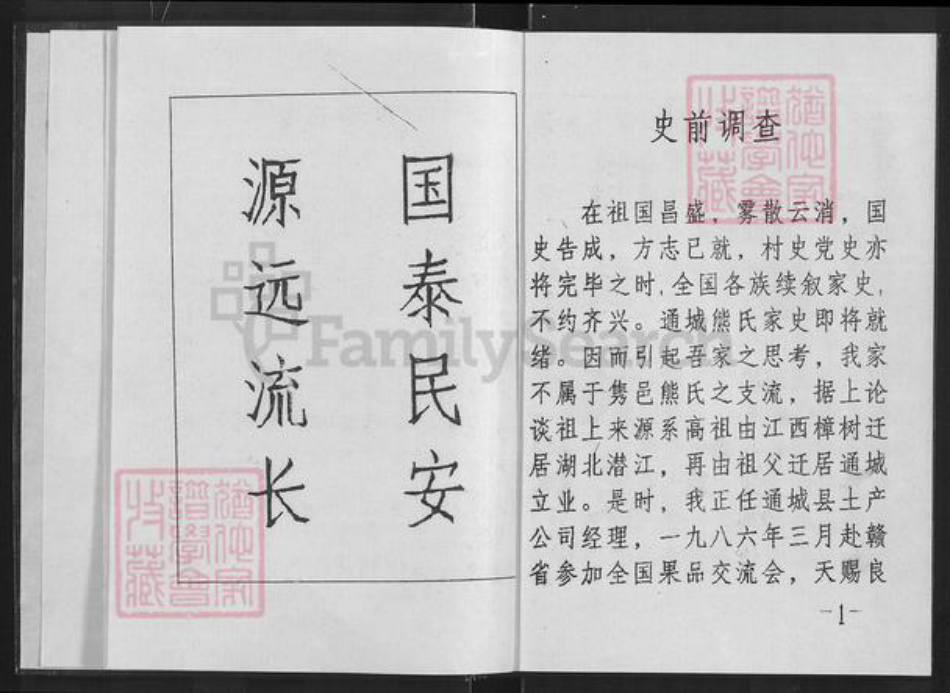 国泰民安
源远流长
史前调查
在祖国昌盛，雾散云消，国
史告成，方志已就，村史党史亦
将完毕之时，全国各族续叙家史，
不约齐兴。通城熊氏家史即将就
绪。因而引起吾家之思考，我家
不属于隽邑熊氏之支流，据上论
谈祖上来源系高祖由江西樟树迁
居湖北潜江，再由祖父迁居通城
立业。是时，我正任通城县土产
公司经理，一九八六年三月赴赣
省参加全国果品交流会，天赐良
-1-
FamilySearch